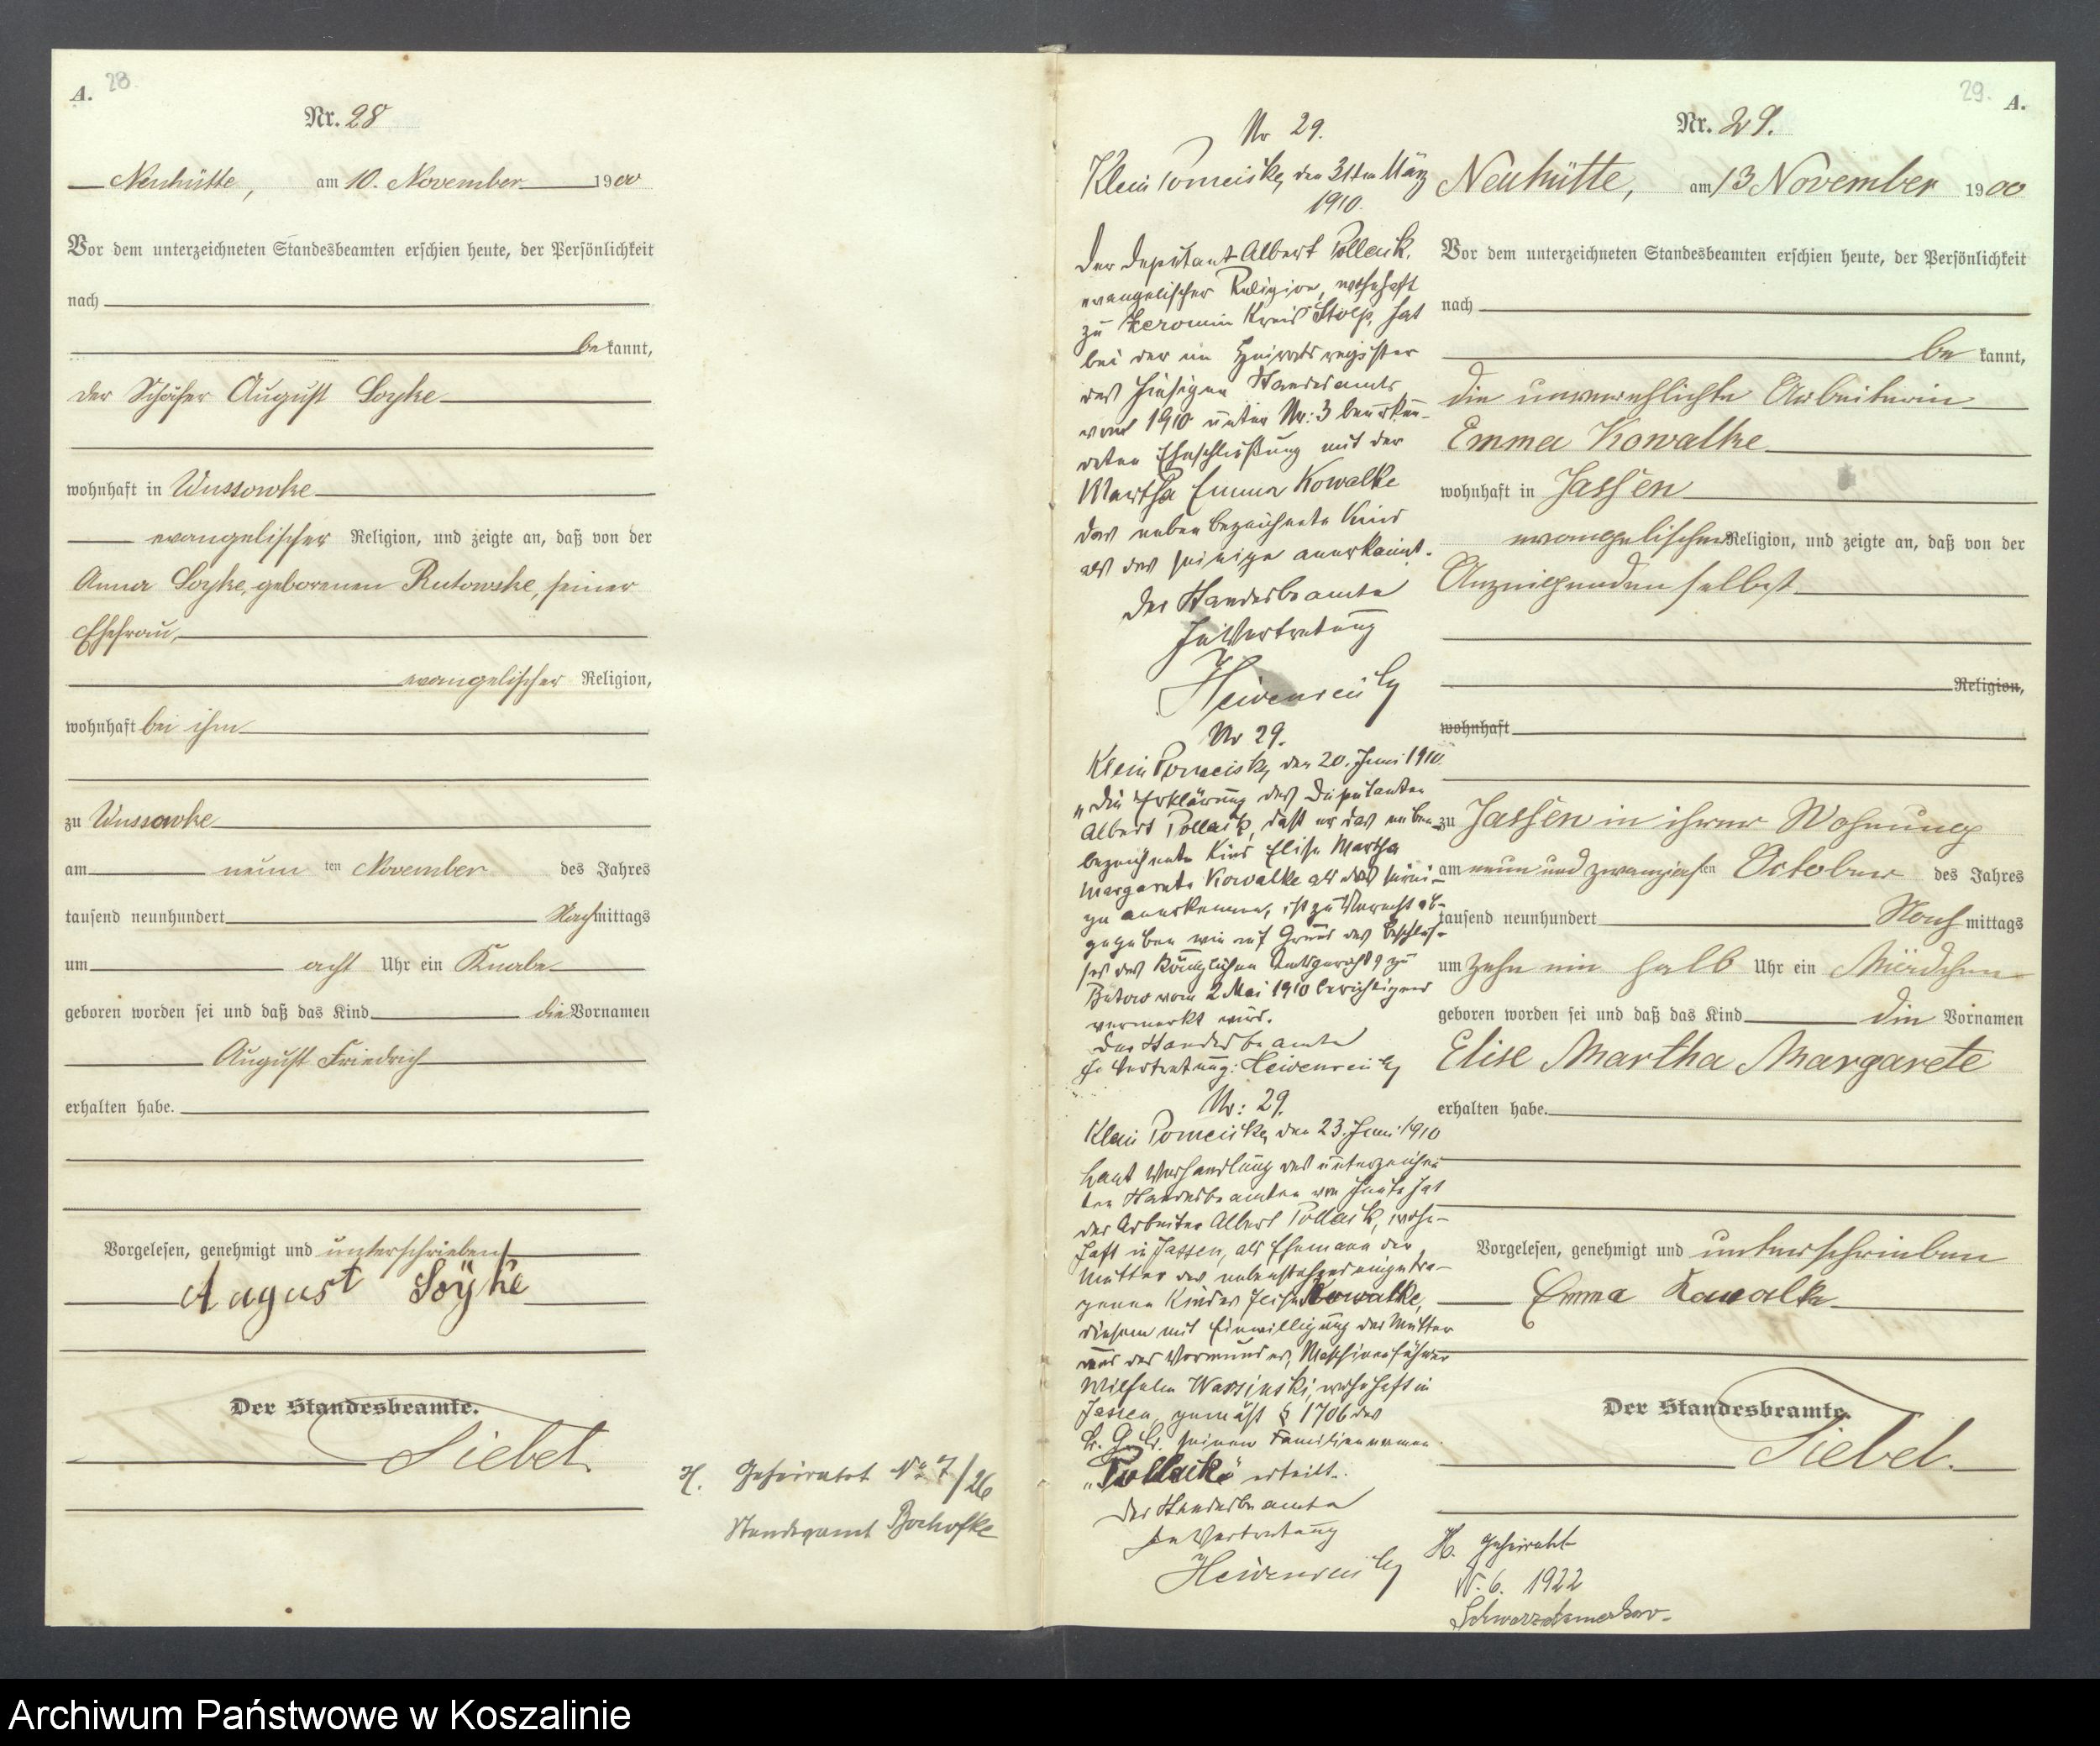 A. 28.
Nr. 28
Neuhütte, am 10. November 1900
Vor dem unterzeichneten Standesbeamten erschien heute, der Persönlichkeit
nach
bekannt,
der Schäfer August Soyke
wohnhaft in Wussowke
evangelischer Religion, und zeigte an, daß von der
Anna Soyke, geborenen Rutowske, seiner
Ehefrau,
evangelischer Religion,
wohnhaft bei ihm
zu Wussowke
am neun ten November des Jahres
tausend neunhundert Nachmittags
um acht Uhr ein Knabe
geboren worden sei und daß das Kind die Vornamen
August Friedrich
erhalten habe.
Vorgelesen, genehmigt und unterschrieben
August Soÿke
Der Standesbeamte.
Siebel
H. Geheiratet No 7/26
Standesamt
Nr 29.
Klein Pomeiske, den 31ten März
1910.
Der Deputant Albert Pollack,
evangelischer Religion, wohnhaft
zu Zeromin Kreis Stolp, hat
bei der im Heiratsregister
des hiesigen Standesamts
vom 1910 unter Nr: 3 beurkun-
deten Eheschließung mit der
Martha Emma Kowalke
das neben bezeichnete Kind
als das seinige anerkannt.
Der Standesbeamte
In Vertretung
Heidenreich
Nr 29.
Klein Pomeiske, den 20. Juni 1910.
"Die Erklärung des Deputanten
Albert Pollack, daß er das neben
bezeichnete Kind Elise Martha
Margarete Kowalke als das seini-
ge anerkenne, ist zu Unrecht ab-
gegeben wie auf Grund des Beschlus-
ses des Königlichen Amtsgerichts zu
Bütow vom 2 Mai 1910 berichtigend
vermerkt wird.
Der Standesbeamte
In Vertretung: Heidenreich
Nr: 29.
Klein Pomeiske, den 23. Juni 1910
Laut Verhandlung des unterzeichne-
ten Standesbeamten von heute hat
der Arbeiter Albert Pollack, wohn-
haft in Jassen, als Ehemann der
Mutter des nebenstehend eingetra-
genen Kindes Kowalke,
diesem mit Einwilligung der Mutter
und des Vormundes, Maschinenführer
Wilhelm Warsinski, wohnhaft in
Jassen, gemäß § 1706 des
B. G. B. seinen Familiennamen
"Pollack" erteilt.
Der Standesbeamte
In Vertretung
Heidenreich
29. A.
Nr. 29.
Neuhütte, am 13 November 1900
Vor dem unterzeichneten Standesbeamten erschien heute, der Persönlichkeit
nach
be kannt,
die unverehelichte Arbeiterin
Emma Kowalke
wohnhaft in Jassen
evangelischer Religion, und zeigte an, daß von der
Anzeigenden selbst
Religion,
wohnhaft
zu Jassen in ihrer Wohnung
am neun und zwanzigsten October des Jahres
tausend neunhundert Nach mittags
um zehn ein halb Uhr ein Mädchen
geboren worden sei und daß das Kind die Vornamen
Elise Martha Margarete
erhalten habe.
Vorgelesen, genehmigt und unterschrieben
Emma Kowalke
Der Standesbeamte.
Siebel.
H. Geheiratet
6. 1922
Archiwum Państwowe w Koszalinie